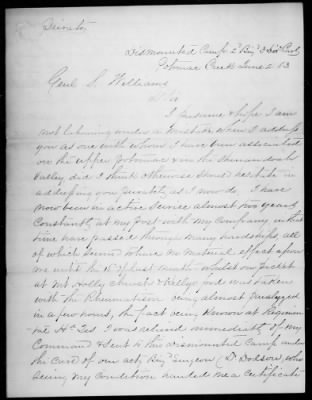 Private
Dismounted Camp 2d Brig 3 Div Cavly
Potomac Creek June 2 63
Genl S. Williams
Sir
I presume & hope I am
not laboring under a mistake when I address
you as one with whom I have been associated
on the upper Potomac & in the Shenandoah
Valley did I think otherwise I would hesitate in
addressing you privately as I now do I have
now been in active service almost two years
Constantly at my post with my Company in this
time have passed through many hardships, all
of which seemed to have no material effect upon
me until the 15th of last month whilst on picket
at Mt Holly Church & Kellys ford was taken
with the Rheumatism being almost paralyzed
in a few hours, the fact being known at Regimen
tal Hd Qrs I was relieved immediately of my
Command & sent to the dismounted Camp under
the care of our act. Brig Surgeon (Dr Dodson, who
seeing my condition handed me a certificate